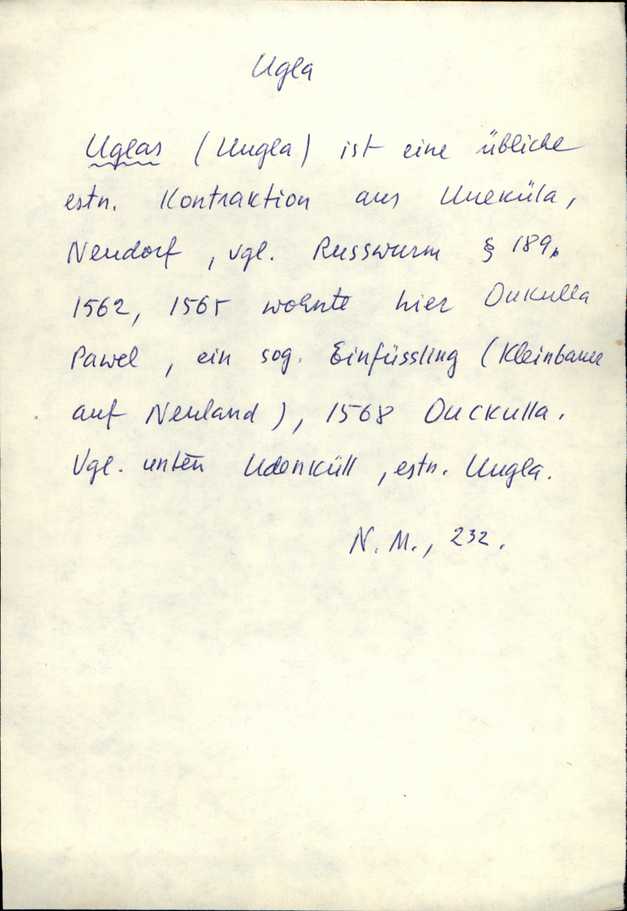 Ugla
Uglas (Uugla) ist eine übliche
estn. Kontraktion aus Uueküla,
Neudorf, vgl. Russwurm § 189,
1562, 1565 wohnte hier Oukulla
Pawel, ein sog. Einfüssling (Kleinbauer
auf Neuland), 1568 Ouckulla.
Vgl. unten Udenküll, estn. Uugla.
N. M., 232.